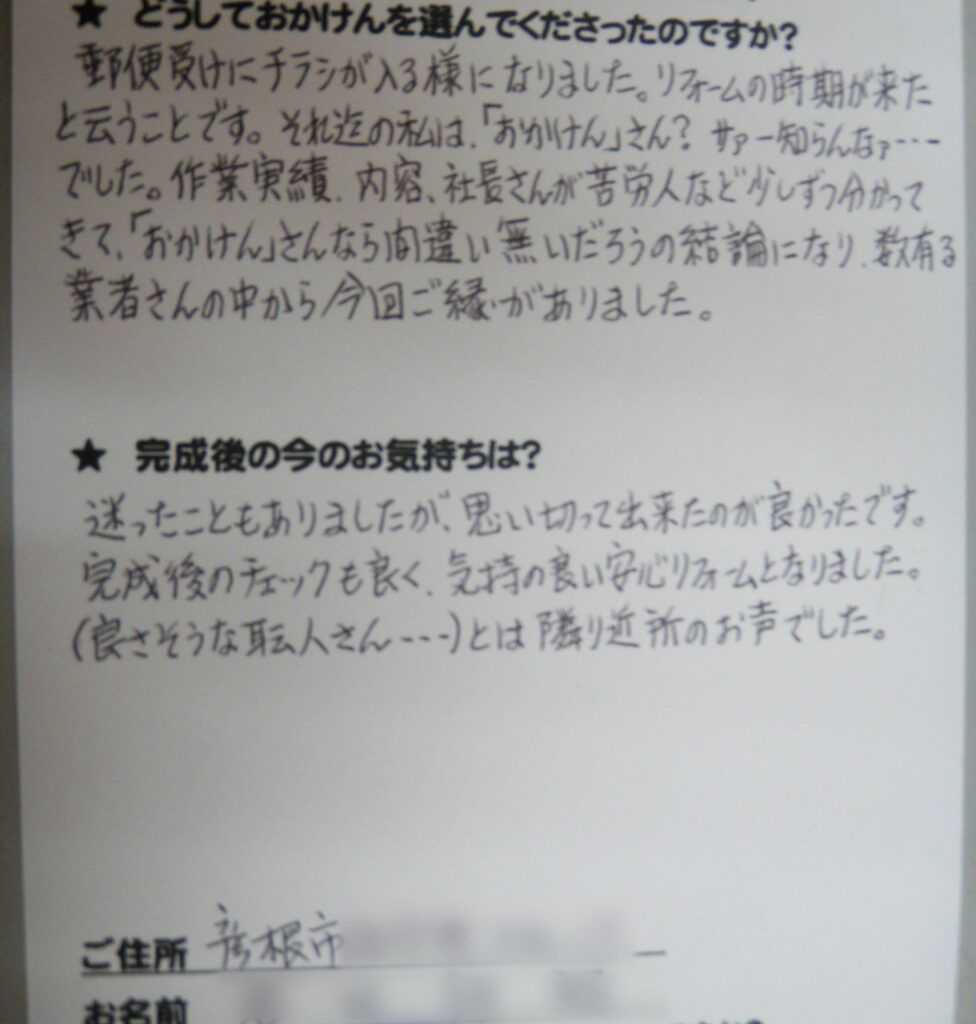 ★ どうしておかけんを選んでくださったのですか?
郵便受けにチラシが入る様になりました。リフォームの時期が来た
と云うことです。それ迄の私は、「おかけん」さん? サァー知らんなァ‥‥
でした。作業実績、内容、社長さんが苦労人など少しずつ分かって
きて、「おかけん」さんなら間違い無いだろうの結論になり、数有る
業者さんの中から今回ご縁がありました。
★ 完成後の今のお気持ちは?
迷ったこともありましたが、思い切って出来たのが良かったです。
完成後のチェックも良く、気持の良い安心リフォームとなりました。
(良さそうな職人さん---)とは隣り近所のお声でした。
ご住所 彦根市
お名前